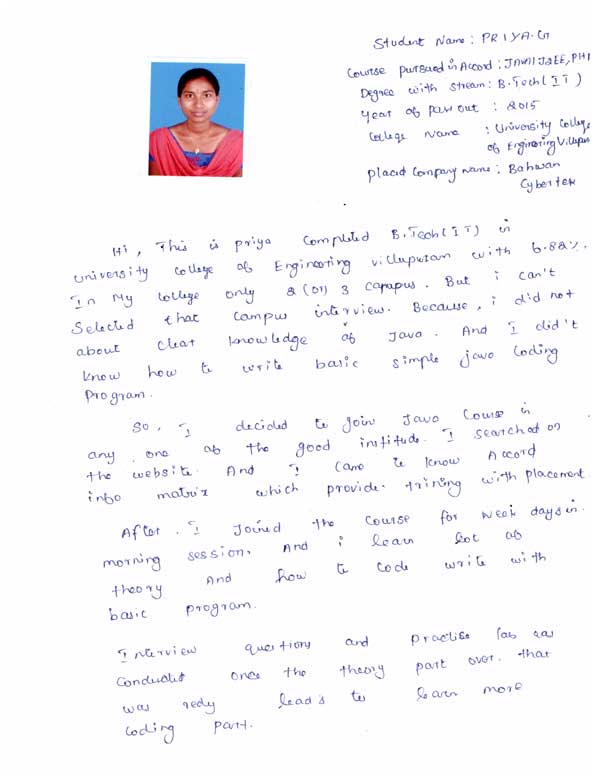 Student Name : PRIYA.G
Course pursued in Accord : JAVA/J2EE, PH
Degree with stream : B.Tech(IT)
Year of Pass out : 2015
College Name : University College
of Engineering Villupu
placed Company Name : Bahwan
Cybertek
Hi, This is priya Completed B.Tech(IT) in
university College of Engineering villupuram with 6.82%.
In My College only 2 (or) 3 campus. But i can't
Selected that campus interview. Because, i did not
about clear knowledge of Java. And I did't
know how to write basic simple java Coding
Program.
So, I decided to join Java Course in
any one of the good institude. I searched on
the website. And I came to know Accord
info matrix which provide. trining with placement.
After. I Joined the Course for week days in.
morning session. And i learn lot of
theory And how to Code write with
basic program.
Interview questions and practise lab was
Conducted once the theory part over. that
was redy lead's to learn more
Coding part.